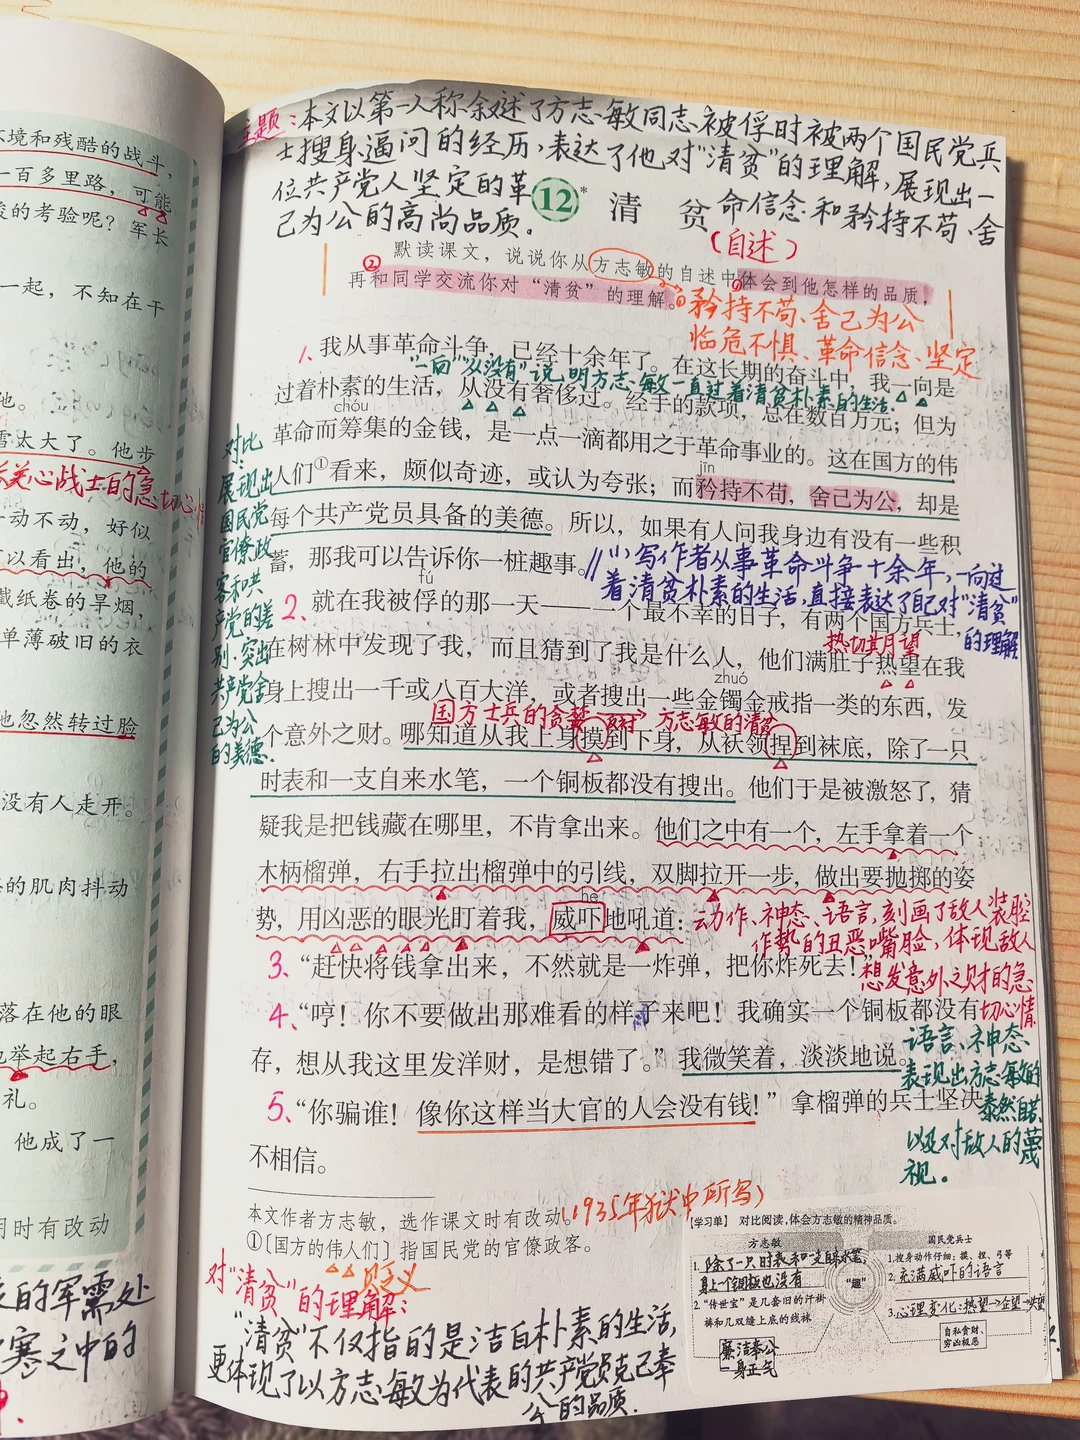 环境和残酷的战斗，
一百多里路，可能
的考验呢？军长
一起，不知在干
他。
雪太大了。他步
关心战士的急切心情
一动不动，好似
可以看出，他的
截纸卷的旱烟，
单薄破旧的衣
他忽然转过脸
没有人走开。
的肌肉抖动
落在他的眼
地举起右手，
礼。
他成了一
用时有改动
的军需处
寒之中的
主题：本文以第一人称叙述了方志敏同志被俘时被两个国民党兵
士搜身逼问的经历，表达了他对“清贫”的理解，展现出一
位共产党人坚定的革命信念和矜持不苟、舍
己为公的高尚品质。
12* 清 贫
（自述）
默读课文，说说你从方志敏的自述中①体会到他怎样的品质，
②再和同学交流你对“清贫”的理解。
①矜持不苟、舍己为公
临危不惧、革命信念、坚定
1、我从事革命斗争，已经十余年了。在这长期的奋斗中，我一向是
“一向”“从没有”说明方志敏一直过着清贫朴素的生活。
过着朴素的生活，从没有奢侈过。经手的款项，总在数百万元；但为
chóu
革命而筹集的金钱，是一点一滴都用之于革命事业的。这在国方的伟
jīn
人们①看来，颇似奇迹，或认为夸张；而矜持不苟，舍己为公，却是
每个共产党员具备的美德。所以，如果有人问我身边有没有一些积
蓄，那我可以告诉你一桩趣事。
对比：
展现出
国民党
官僚政
客和共
产党的差
别，突出
共产党舍
己为公
的美德.
//(1)写作者从事革命斗争十余年，一向过
着清贫朴素的生活，直接表达了自己对“清贫”
的理解
fú
2、就在我被俘的那一天——一个最不幸的日子，有两个国方兵士，
热切期望
在树林中发现了我，而且猜到了我是什么人，他们满肚子热望在我
zhuó
身上搜出一千或八百大洋，或者搜出一些金镯金戒指一类的东西，发
国方士兵的贪婪 反衬→ 方志敏的清贫
个意外之财。哪知道从我上身摸到下身，从袄领捏到袜底，除了一只
时表和一支自来水笔，一个铜板都没有搜出。他们于是被激怒了，猜
疑我是把钱藏在哪里，不肯拿出来。他们之中有一个，左手拿着一个
木柄榴弹，右手拉出榴弹中的引线，双脚拉开一步，做出要抛掷的姿
hè
势，用凶恶的眼光盯着我，威吓地吼道：
动作、神态、语言，刻画了敌人装腔
作势的丑恶嘴脸，体现敌人
想发意外之财的急
切心情
3、“赶快将钱拿出来，不然就是一炸弹，把你炸死去！”
4、“哼！你不要做出那难看的样子来吧！我确实一个铜板都没有
存，想从我这里发洋财，是想错了。”我微笑着，淡淡地说。
语言、神态
表现出方志敏的
泰然自若
以及对敌人的蔑
视。
5、“你骗谁！像你这样当大官的人会没有钱！”拿榴弹的兵士坚决
不相信。
本文作者方志敏，选作课文时有改动。（1935年狱中所写）
①〔国方的伟人们〕指国民党的官僚政客。
贬义
对“清贫”的理解：
“清贫”不仅指的是洁白朴素的生活，
更体现了以方志敏为代表的共产党员克己奉
公的品质.
【学习单】 对比阅读，体会方志敏的精神品质。
方志敏
1.除了一只时表和一支自来水笔，
身上一个铜板也没有
2.“传世宝”是几套旧的汗褂
裤和几双缝上底的线袜
廉洁奉公
一身正气
“趣”
国民党兵士
1.搜身动作仔细：摸、捏、弓等
2.充满威吓的语言
3.心理变化：热望→企望→失望
自私贪财、
穷凶极恶